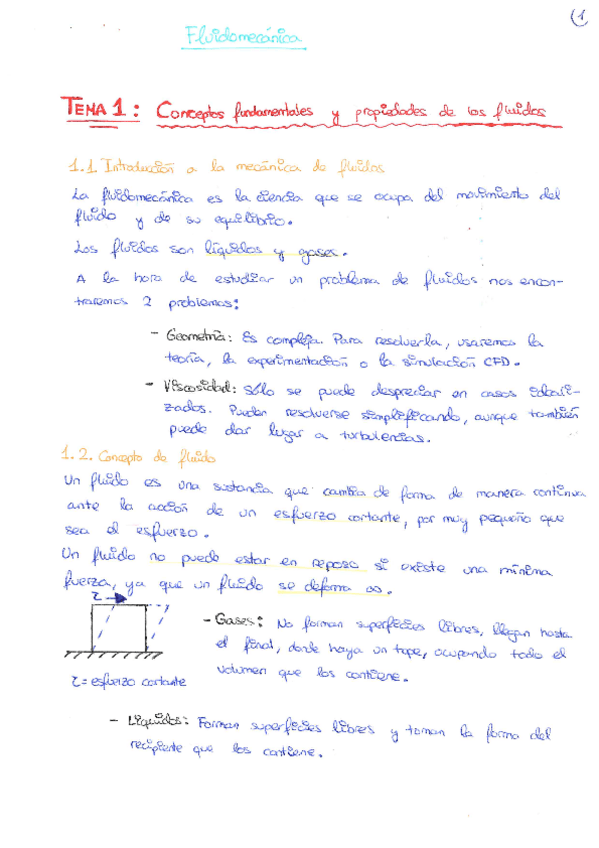 1
Fluidomecánica
TEMA 1: Conceptos fundamentales y propiedades de los fluidos
1.1 Introducción a la mecánica de fluidos
La fluidomecánica es la ciencia que se ocupa del movimiento del
fluido y de su equilibrio.
Los fluidos son líquidos y gases.
A la hora de estudiar un problema de fluidos nos encon-
traremos 2 problemas:
- Geometría: Es compleja. Para resolverla, usaremos la
teoría, la experimentación o la simulación CFD.
- Viscosidad: Sólo se puede despreciar en casos ideali-
zados. Puden resolverse simplificando, aunque también
puede dar lugar a turbulencias.
1.2. Concepto de fluido
Un fluido es una sustancia que cambia de forma de manera continua
ante la acción de un esfuerzo cortante, por muy pequeño que
sea el esfuerzo.
Un fluido no puede estar en reposo si existe una mínima
fuerza, ya que un fluido se deforma ∞.
τ
- Gases: No forman superficies libres, llegan hasta
el final, donde haya un tope, ocupando todo el
volumen que los contiene.
τ = esfuerzo cortante
- Líquidos: Forman superficies libres y toman la forma del
recipiente que los contiene.